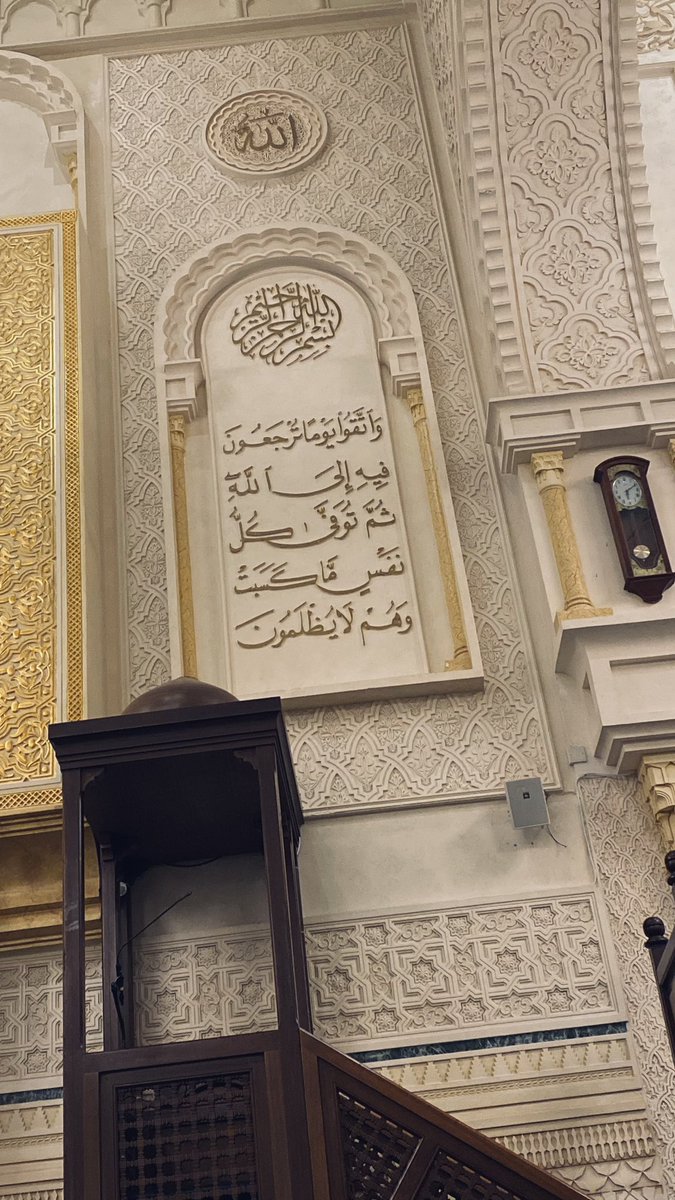 الله
بسم الله الرحمن الرحيم
وَٱتَّقُوا۟ يَوْمًا تُرْجَعُونَ
فِيهِ إِلَى ٱللَّهِۖ
ثُمَّ تُوَفَّىٰ كُلُّ
نَفْسٍ مَّا كَسَبَتْ
وَهُمْ لَا يُظْلَمُونَ